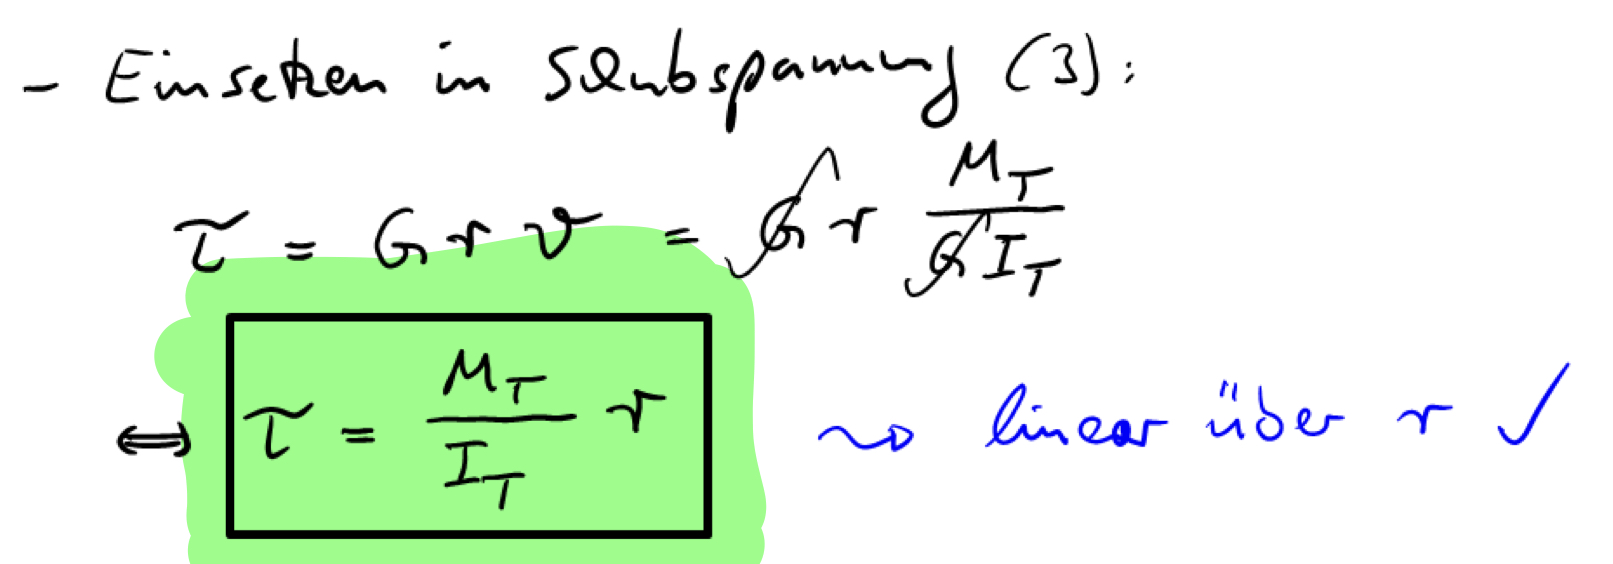 - Einsetzen in Schubspannung (3):
τ = G r ϑ = G r M_T / (G I_T)
⟺ τ = M_T / I_T r ⇝ linear über r ✓